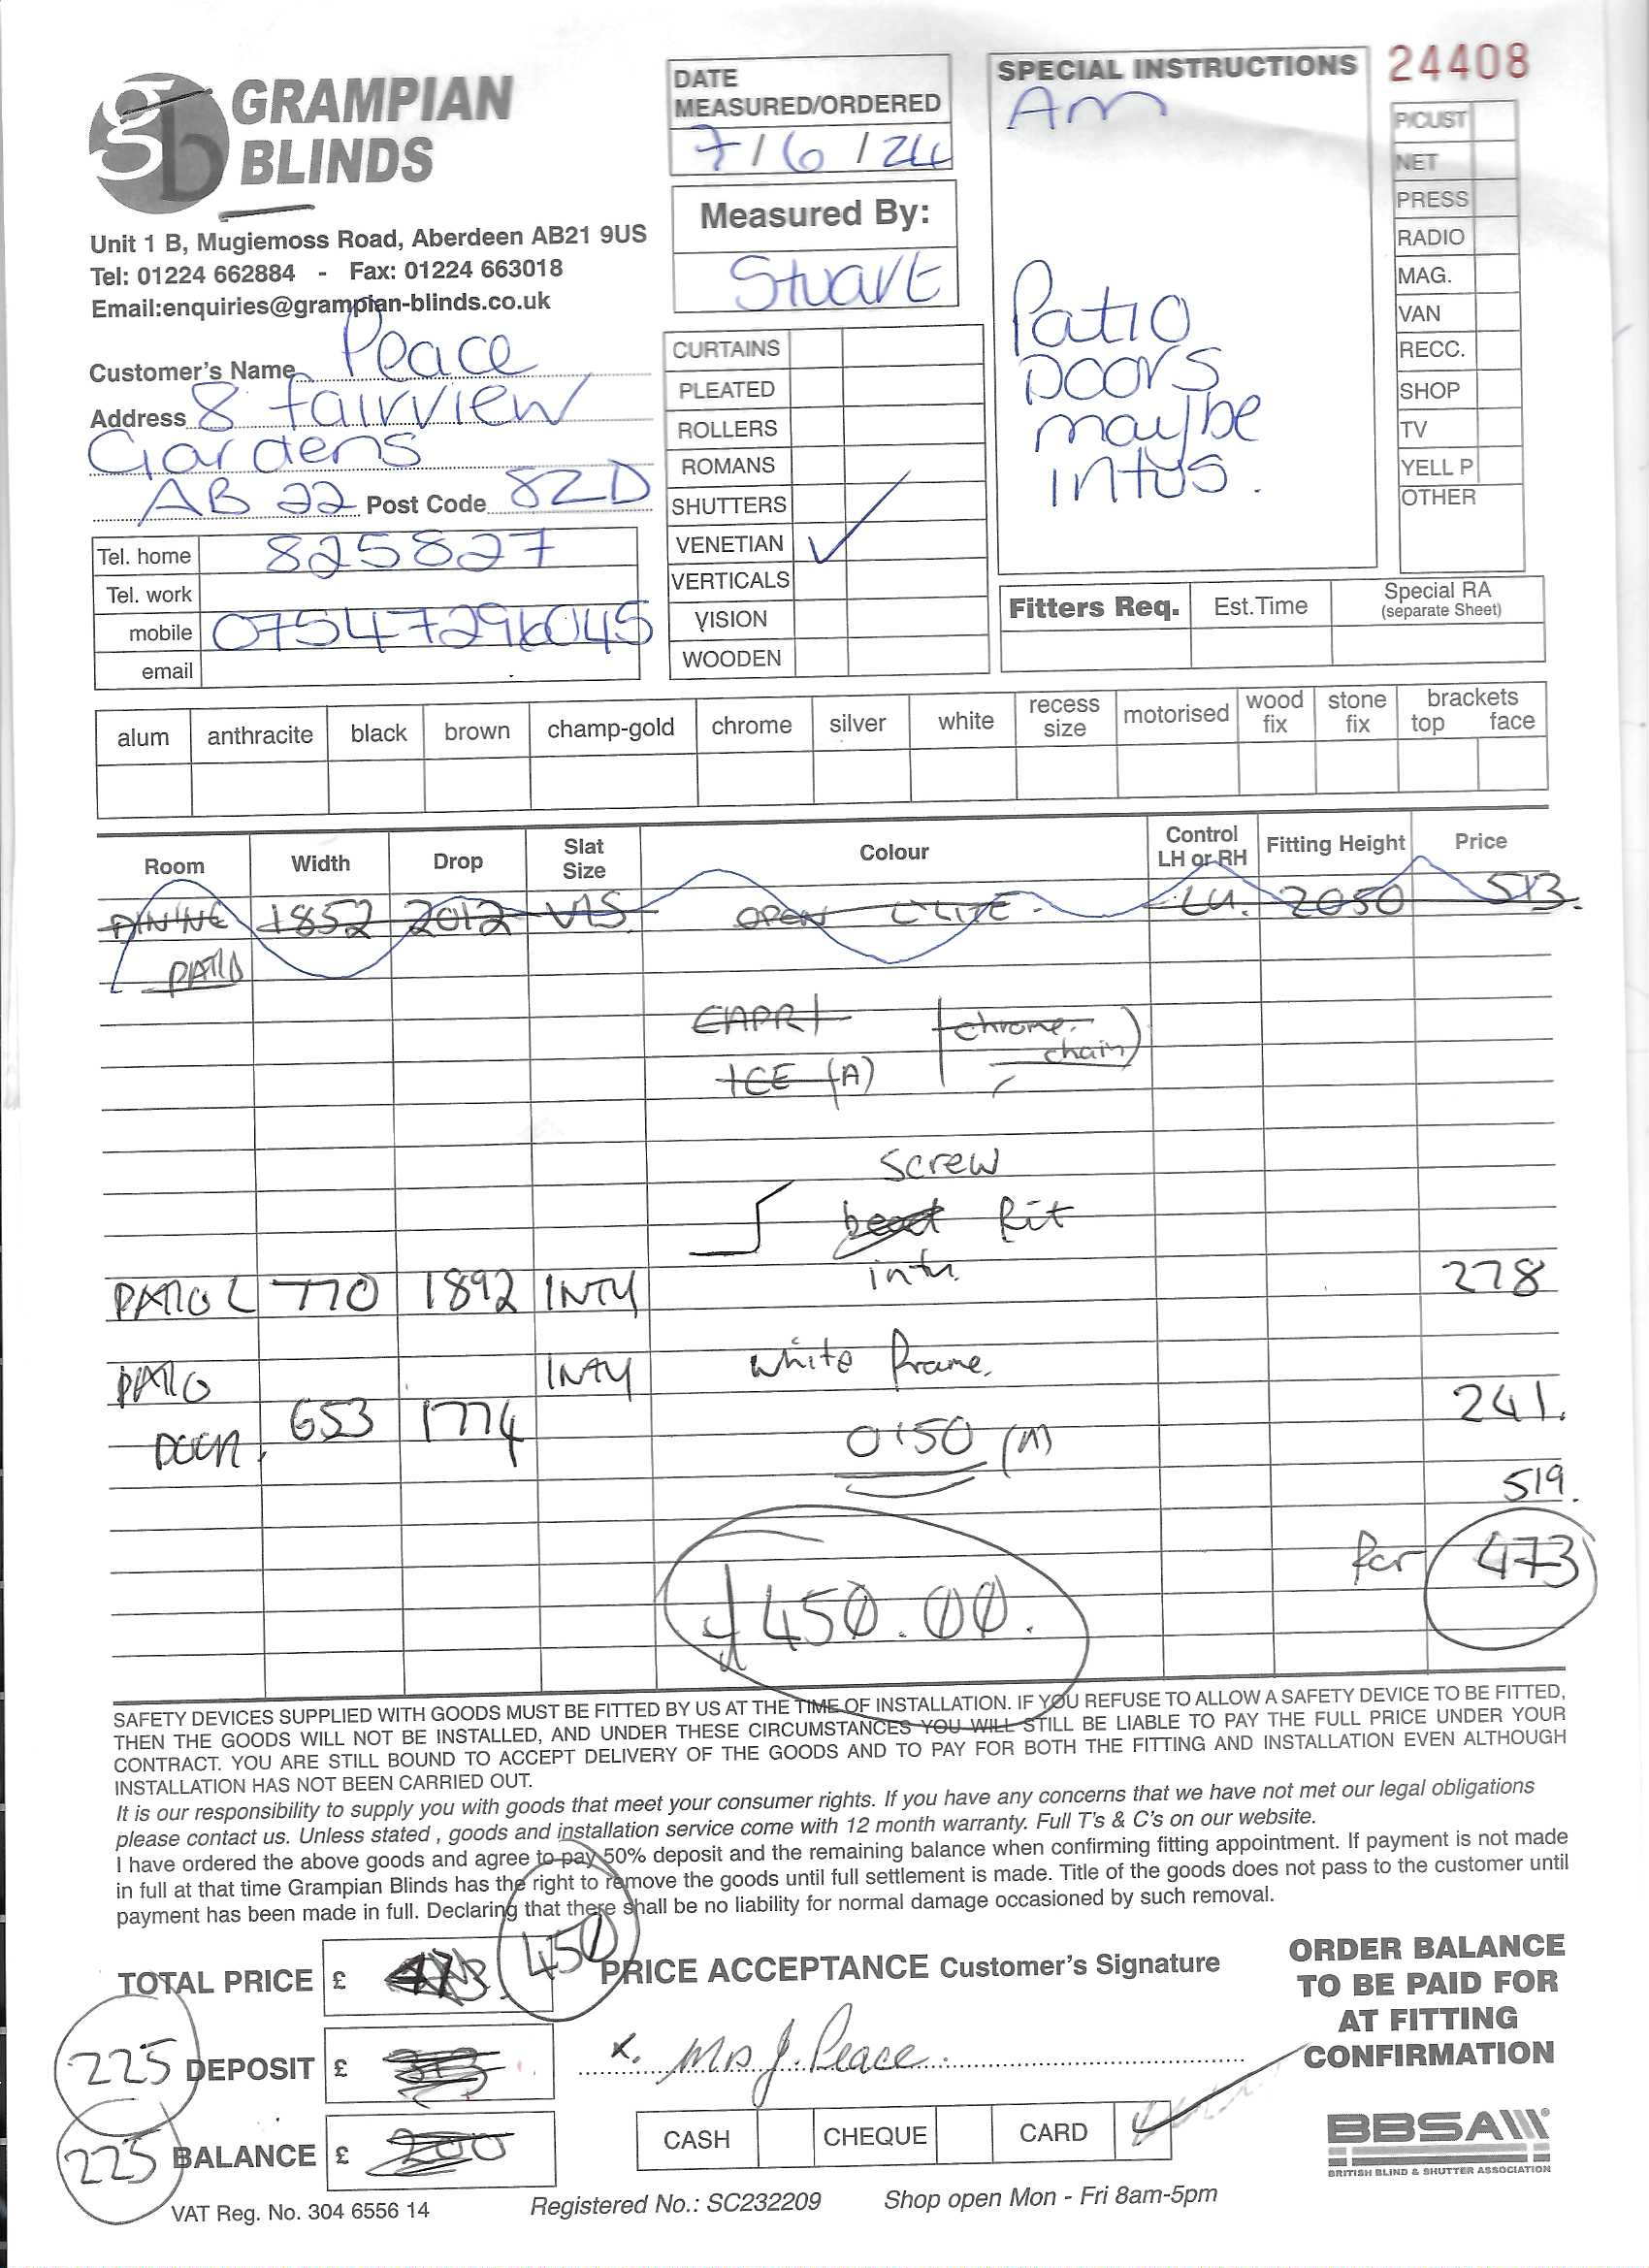 24408
GRAMPIAN
BLINDS
Unit 1 B, Mugiemoss Road, Aberdeen AB21 9US
Tel: 01224 662884 - Fax: 01224 663018
Email:enquiries@grampian-blinds.co.uk
Customer's Name Peace
Address 8 Fairview
Gardens
AB 22 Post Code 8ZD
Tel. home 825827
Tel. work
mobile 07547296045
email
DATE
MEASURED/ORDERED
7/6/24
Measured By:
Stuart
CURTAINS
PLEATED
ROLLERS
ROMANS
SHUTTERS
VENETIAN ✓
VERTICALS
VISION
WOODEN
SPECIAL INSTRUCTIONS
Am
Patio
Doors
maybe
intus.
P/CUST
NET
PRESS
RADIO
MAG.
VAN
RECC.
SHOP
TV
YELL P
OTHER
Fitters Req. Est.Time Special RA
(separate Sheet)
alum anthracite black brown champ-gold chrome silver white recess size motorised wood fix stone fix brackets top face
Room Width Drop Slat Size Colour Control LH or RH Fitting Height Price
DINING 1852 2012 VIS. OPEN LH. 2050 513.
PATIO
CAPRI (chrome
chain)
ICE (A)
Screw
fit
PATIO L 770 1892 INTU intu 278
PATIO INTU white frame.
DOOR. 653 1774 0150 (A) 241.
519.
for 473
£450.00.
SAFETY DEVICES SUPPLIED WITH GOODS MUST BE FITTED BY US AT THE TIME OF INSTALLATION. IF YOU REFUSE TO ALLOW A SAFETY DEVICE TO BE FITTED,
THEN THE GOODS WILL NOT BE INSTALLED, AND UNDER THESE CIRCUMSTANCES YOU WILL STILL BE LIABLE TO PAY THE FULL PRICE UNDER YOUR
CONTRACT. YOU ARE STILL BOUND TO ACCEPT DELIVERY OF THE GOODS AND TO PAY FOR BOTH THE FITTING AND INSTALLATION EVEN ALTHOUGH
INSTALLATION HAS NOT BEEN CARRIED OUT.
It is our responsibility to supply you with goods that meet your consumer rights. If you have any concerns that we have not met our legal obligations
please contact us. Unless stated , goods and installation service come with 12 month warranty. Full T's & C's on our website.
I have ordered the above goods and agree to pay 50% deposit and the remaining balance when confirming fitting appointment. If payment is not made
in full at that time Grampian Blinds has the right to remove the goods until full settlement is made. Title of the goods does not pass to the customer until
payment has been made in full. Declaring that there shall be no liability for normal damage occasioned by such removal.
TOTAL PRICE £ 473 450
225 DEPOSIT £
225 BALANCE £ 200
PRICE ACCEPTANCE Customer's Signature
x. Mrs J. Peace
CASH CHEQUE CARD ✓
ORDER BALANCE
TO BE PAID FOR
AT FITTING
CONFIRMATION
BBSA
BRITISH BLIND & SHUTTER ASSOCIATION
VAT Reg. No. 304 6556 14 Registered No.: SC232209 Shop open Mon - Fri 8am-5pm